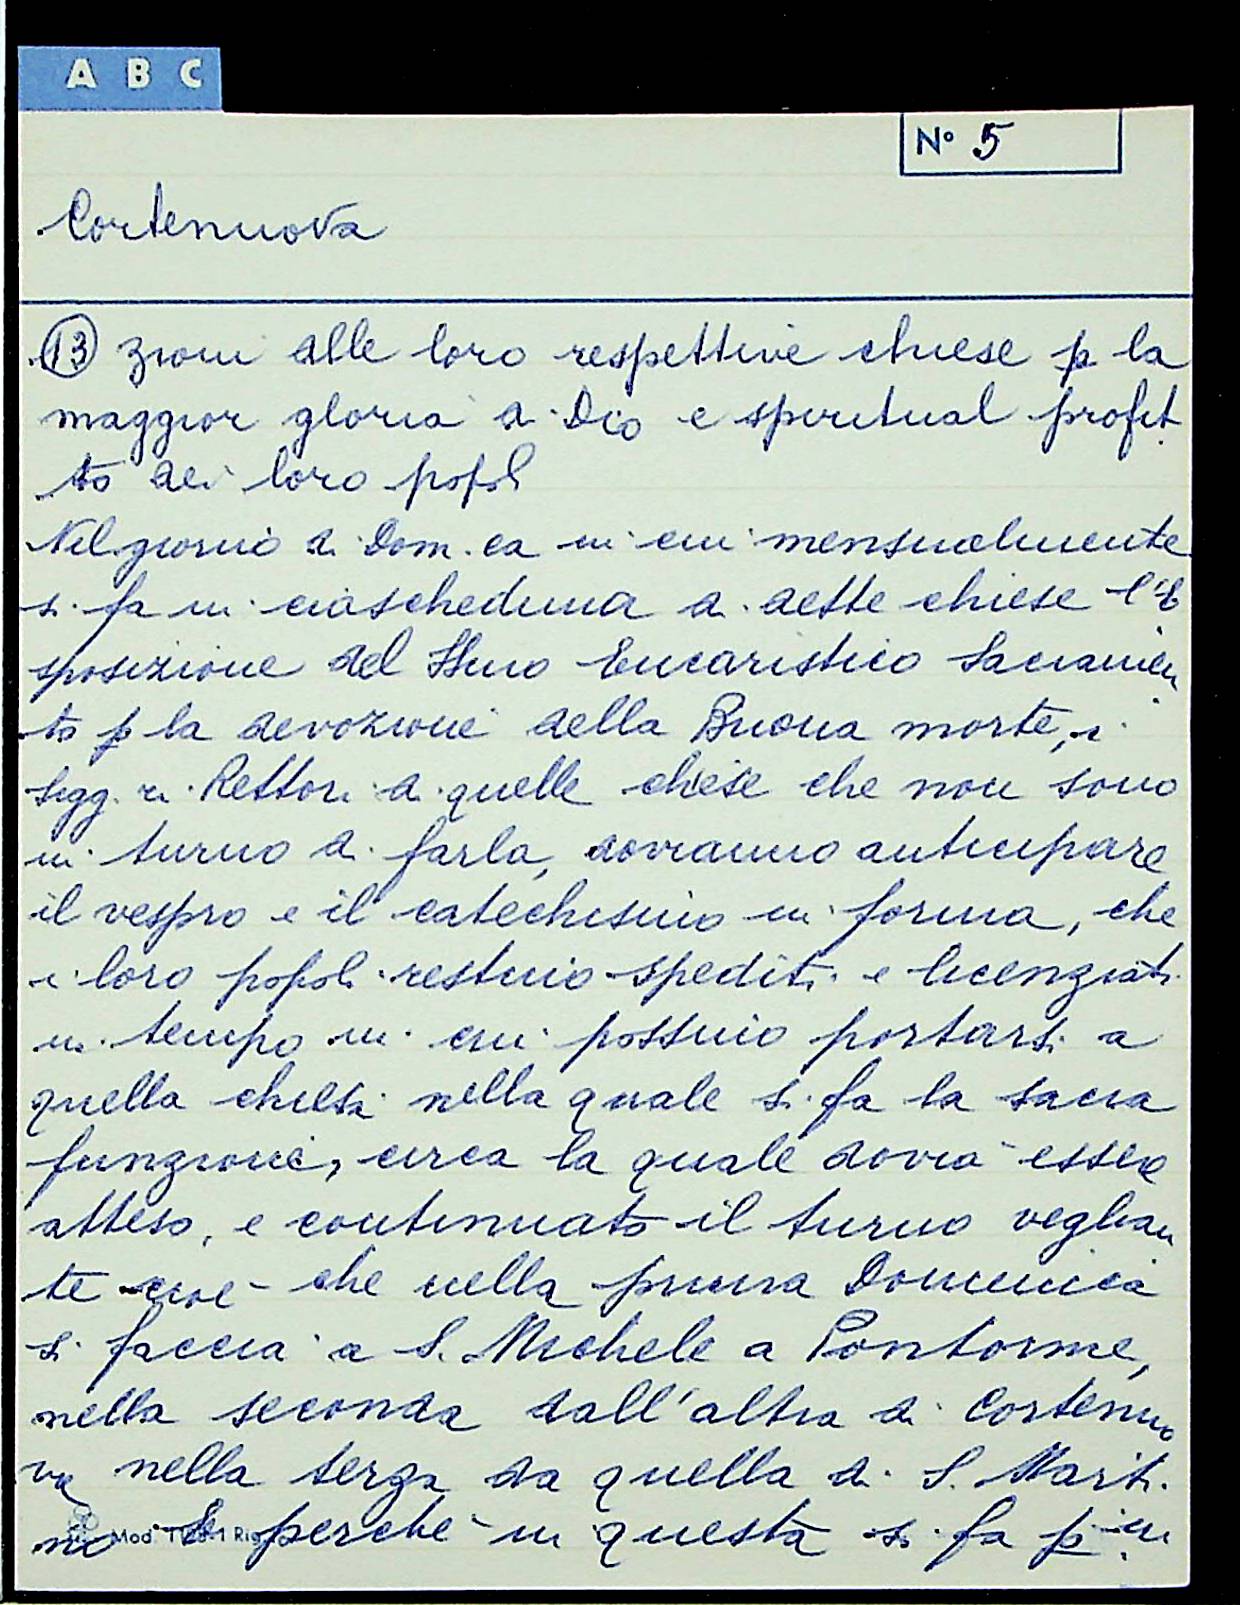 A B C
N° 5
Cortenuova
13 zioni alle loro respettive chiese p la
maggior gloria di Dio e spiritual profit
to dei loro popoli
Nel giorno di Dom.ca in cui mensualmente
si fa in ciascheduna di dette chiese l'E
sposizione del SSmo Eucaristico Sacramen
to p la devozione della Buona morte, i
Sigg.ri Rettori di quelle chiese che non sono
in turno di farla, dovranno anticipare
il vespro e il catechismo in forma, che
i loro popoli restino spediti e licenziati
in tempo in cui possino portarsi a
quella chiesa nella quale si fa la sacra
funzione, circa la quale dovrà essere
atteso, e continuato il turno veglian
te cioè che nella prima Domenica
si faccia a S. Michele a Pontorme,
nella seconda dall'altra di Cortenuo
va nella terza da quella di S. Marti
no E perché in questa si fa p in
Mod.